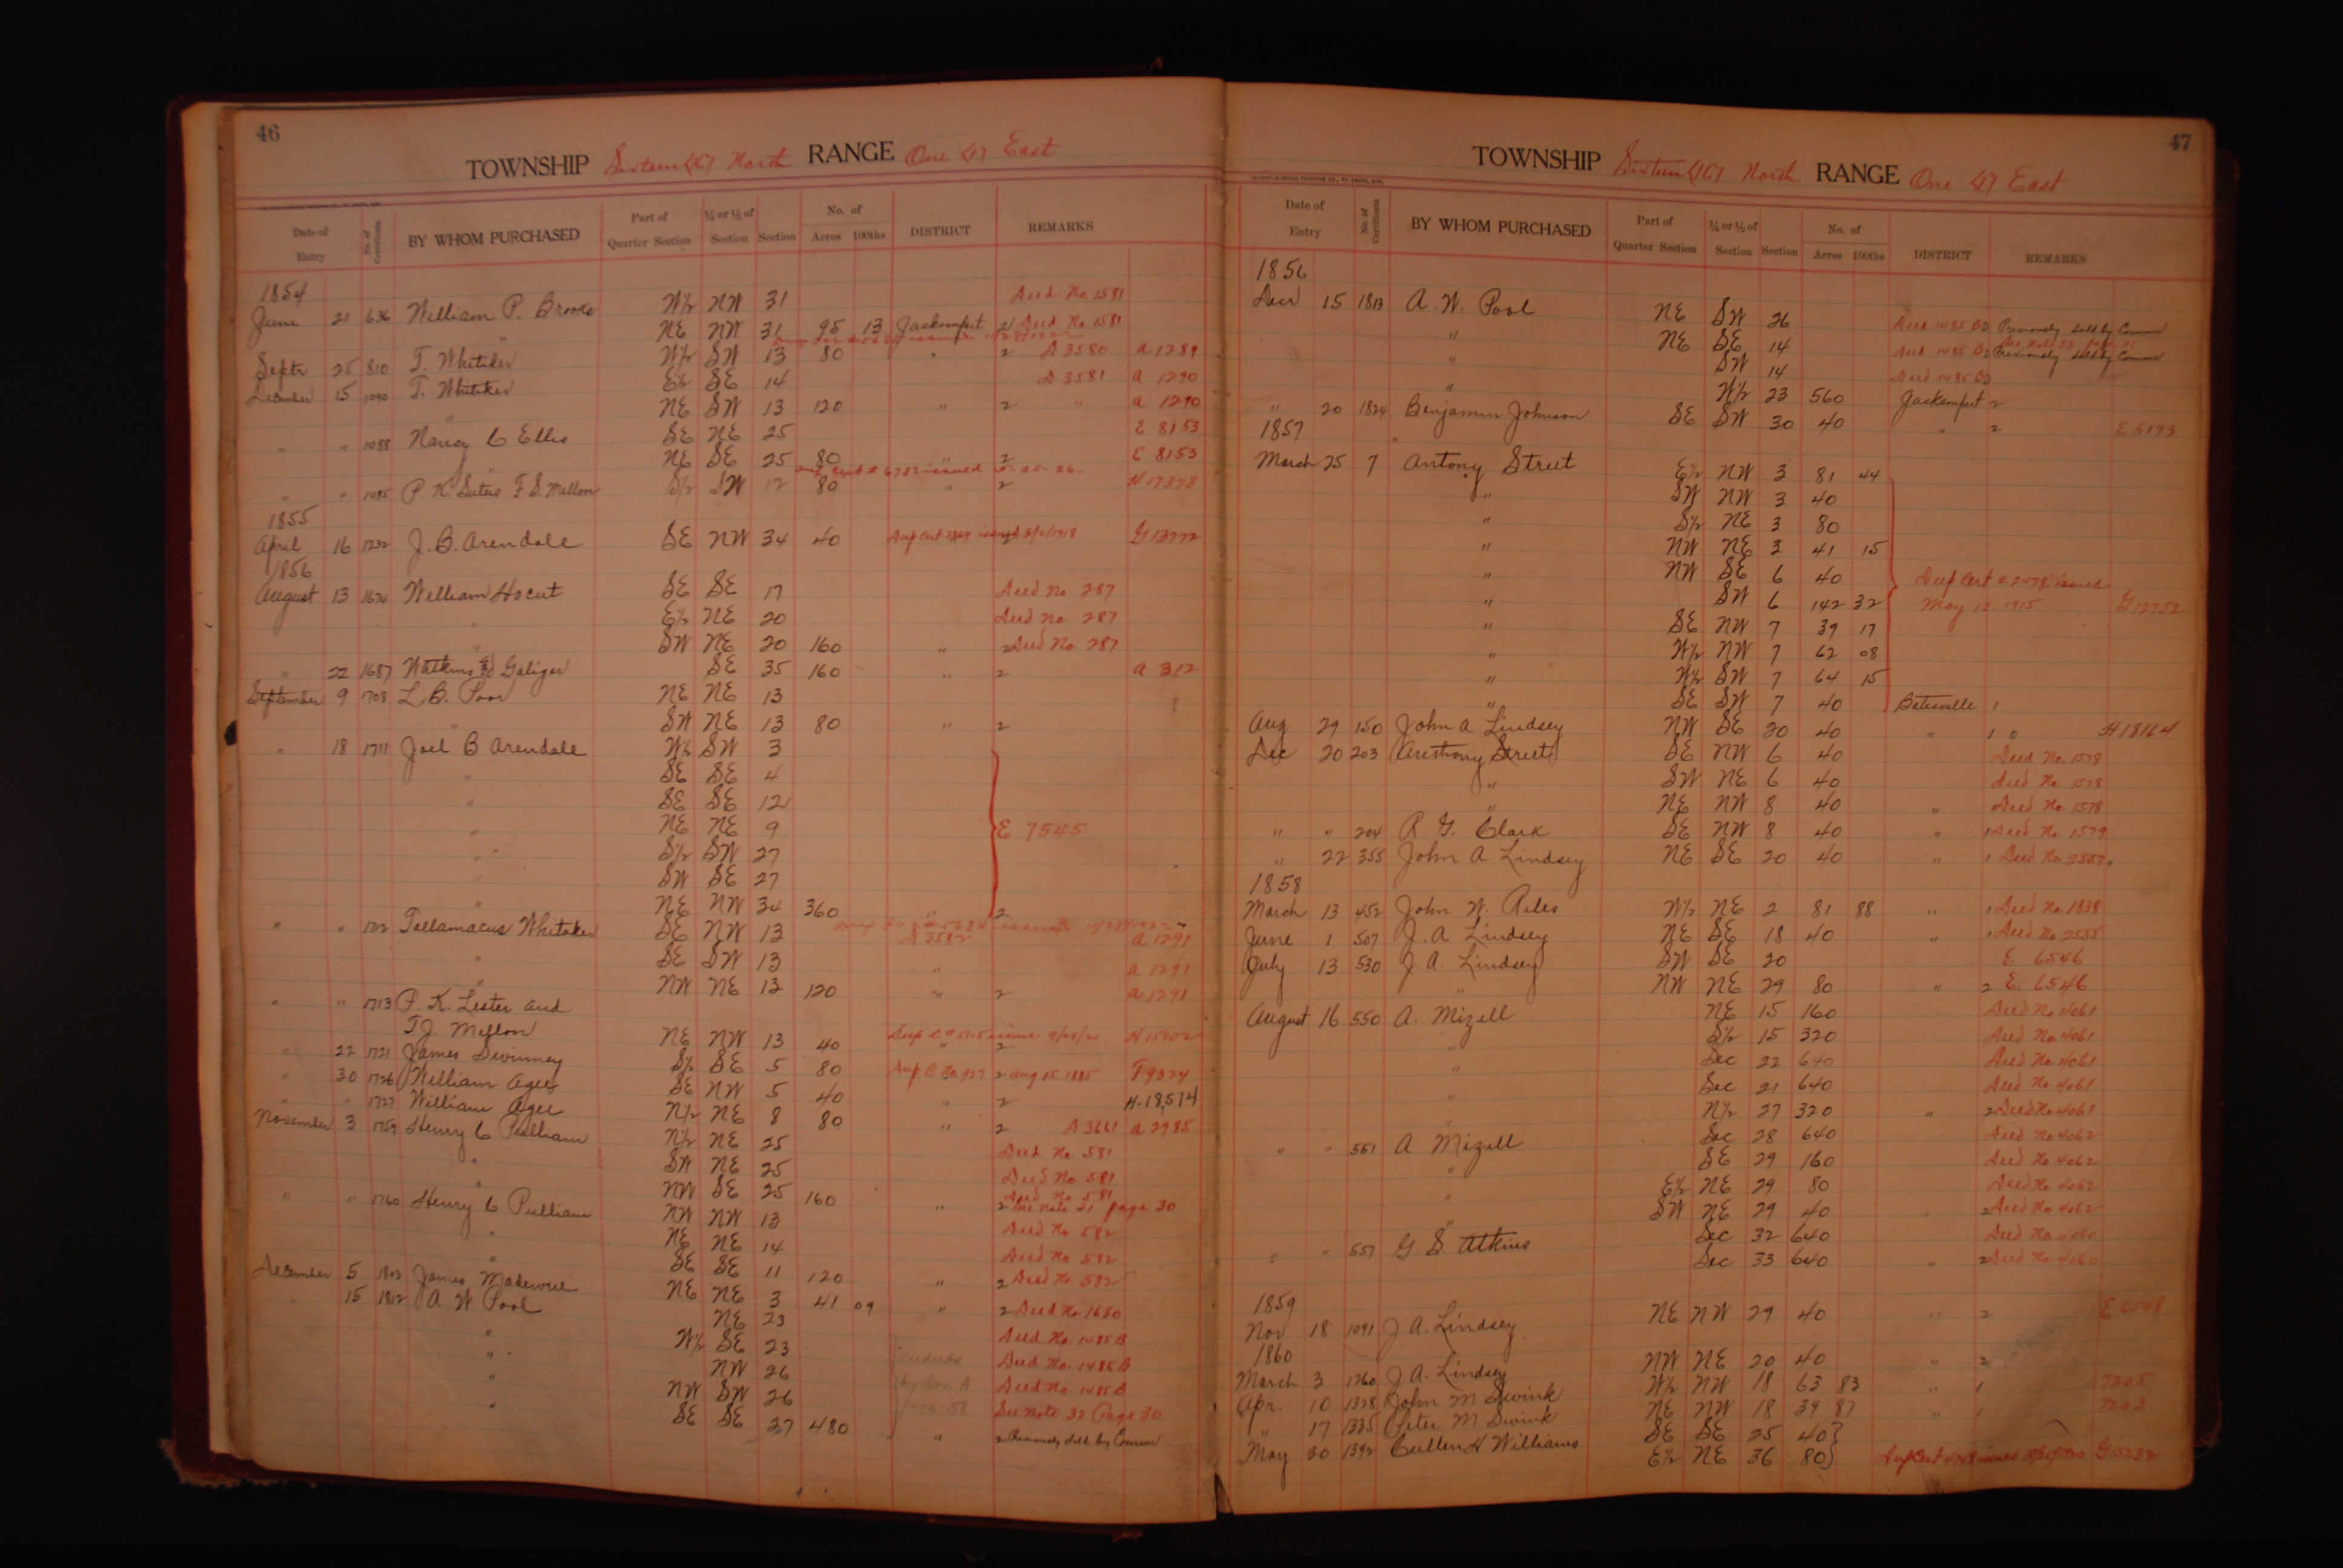 46
TOWNSHIP Sixteen (16) North RANGE One (1) East
Date of Entry No. of Certificate BY WHOM PURCHASED Part of Quarter Section ¼ or ½ of Section Section No. of Acres 100ths DISTRICT REMARKS
1854
June 21 636 William P. Brooks W½ NW 31 Deed No. 1581
" NE NW 31 95 13 Jacksonport 2 Deed No 1581
Septr 25 810 T. Whitiker W½ SW 13 80 " 2 D 3580 a 1289
December 15 1090 T. Whitiker E½ SE 14 D 3581 a 1290
" NE SW 13 120 " 2 " a 1290
" " 1088 Nancy C Ellis SE NE 25 E 8153
" NE SE 25 80 " 2 E 8153
" " 1095 S½ SW 12 80 " 2 H 17378
1855
April 16 1232 J. B. Arendale SE NW 34 40 Dup Cert 1869 issued G 13772
1856
August 13 1676 William Hocut SE SE 17 Deed No 287
" E½ NE 20 Deed No. 287
" SW NE 20 160 " 2 Deed No 287
" 22 1687 Watkins & Galiger SE 35 160 " 2 a 312
September 9 1708 L. B. Poor NE NE 13
" SW NE 13 80 " 2
" 18 1711 Joel B Arendale W½ SW 3
" SE SE 4
" SE SE 12
" NE NE 9 E 7545
" S½ SW 27
" SW SE 27
" NE NW 34 360 " 2
" " 1712 Tellamacus Whitaker SE NW 13 D 3582 a 1291
" SE SW 13 " a 1291
" NW NE 13 120 " 2 a 1291
" " 1713 P. K. Lester and
T. J. Mellon NE NW 13 40 " 2
" 22 1721 James Swinney S½ SE 5 80 Dup C No 927 2 Aug 15 1885 F 9324
" 30 1726 William Agee SE NW 5 40 " 2 H-18,574
" " 1727 William Agee N½ NE 8 80 " 2 D 3661 a 2985
November 3 1759 Henry C Pulliam N½ NE 25 Deed No. 581
" SW NE 25 Deed No 581
" NW SE 25 160 " 2 Deed No 581 See Note 31 page 30
" " 1760 Henry C Pulliam NW NW 13 Deed No 582
" NE NE 14 Deed No 582
" SE SE 11 120 " 2 Deed No 582
December 5 1803 James NE NE 3 41 09 " 2 Deed No. 1630
" 15 1812 A W Pool NE 23 Deed No. 1485 B
" W½ SE 23 Deed No. 1485 B
" NW 26 Deed No. 1485 B
" NW SW 26 See Note 32 Page 30
" SE SE 27 480 " 2 Previously Sold by Commr
47
TOWNSHIP Sixteen (16) North RANGE One (1) East
Date of Entry No. of Certificate BY WHOM PURCHASED Part of Quarter Section ¼ or ½ of Section Section No. of Acres 100ths DISTRICT REMARKS
1856
Decr 15 1813 A. W. Pool NE SW 26 Deed 1485 BD Previously sold by Commr
" NE SE 14 Deed 1485 BD Previously sold by Commr
" SW 14 Deed 1485 BD
" W½ 23 560 Jacksonport 2
" 20 1824 Benjamin Johnson SE SW 30 40 " 2 E 5193
1857
March 25 7 Antony Street E½ NW 3 81 44
" SW NW 3 40
" S½ NE 3 80
" NW NE 3 41 15
" NW SE 6 40 Dup Cert # 2478 issued
" SW 6 142 32 May 12 1915 G 12752
" SE NW 7 39 17
" W½ NW 7 62 08
" W½ SW 7 64 15
" SE SW 7 40 Batesville 1
Aug 29 150 John A Lindsey NW SE 20 40 " 1 H 18164
Dec 20 203 Anthony Street SE NW 6 40 Deed No. 1578
" SW NE 6 40 Deed No. 1578
" NE NW 8 40 " Deed No. 1578
" " 204 R. G. Clark SE NW 8 40 " 1 Deed No. 1579
" 22 355 John A Lindsey NE SE 20 40 " 1 Deed No 2557
1858
March 13 452 John W. Riles W½ NE 2 81 88 " 1 Deed No. 1838
June 1 507 J. A Lindsey NE SE 18 40 " 1 Deed No 2555
July 13 530 J. A. Lindsey SW SE 20 E 6546
" NW NE 29 80 " 2 E. 6546
August 16 550 A. Mizell NE 15 160 Deed No 4061
" S½ 15 320 Deed No. 4061
" Sec 22 640 Deed No 4061
" Sec 21 640 Deed No 4061
" N½ 27 320 " 2 Deed No 4061
" " 551 A Mizell Sec 28 640 Deed No 4062
" SE 29 160 Deed No 4062
" E½ NE 29 80 Deed No 4062
" SW NE 29 40 " 2 Deed No 4062
" " 557 G S. Atkins Sec 32 640 Deed No. 4060
Sec 33 640 " 2 Deed No 4060
1859
Nov 18 1091 J A. Lindsey NE NW 29 40 " 2 E 6548
1860
March 3 1260 J A. Lindsey NW NE 20 40 " 2
Apr. 10 1328 John M Swink W½ NW 18 63 83 " 1 7205
" 17 1335 Peter M Swink NE NW 18 39 87 " 1 7203
May 30 1392 Cullen H Williams SE SE 25 40
E½ NE 36 80 G 15232